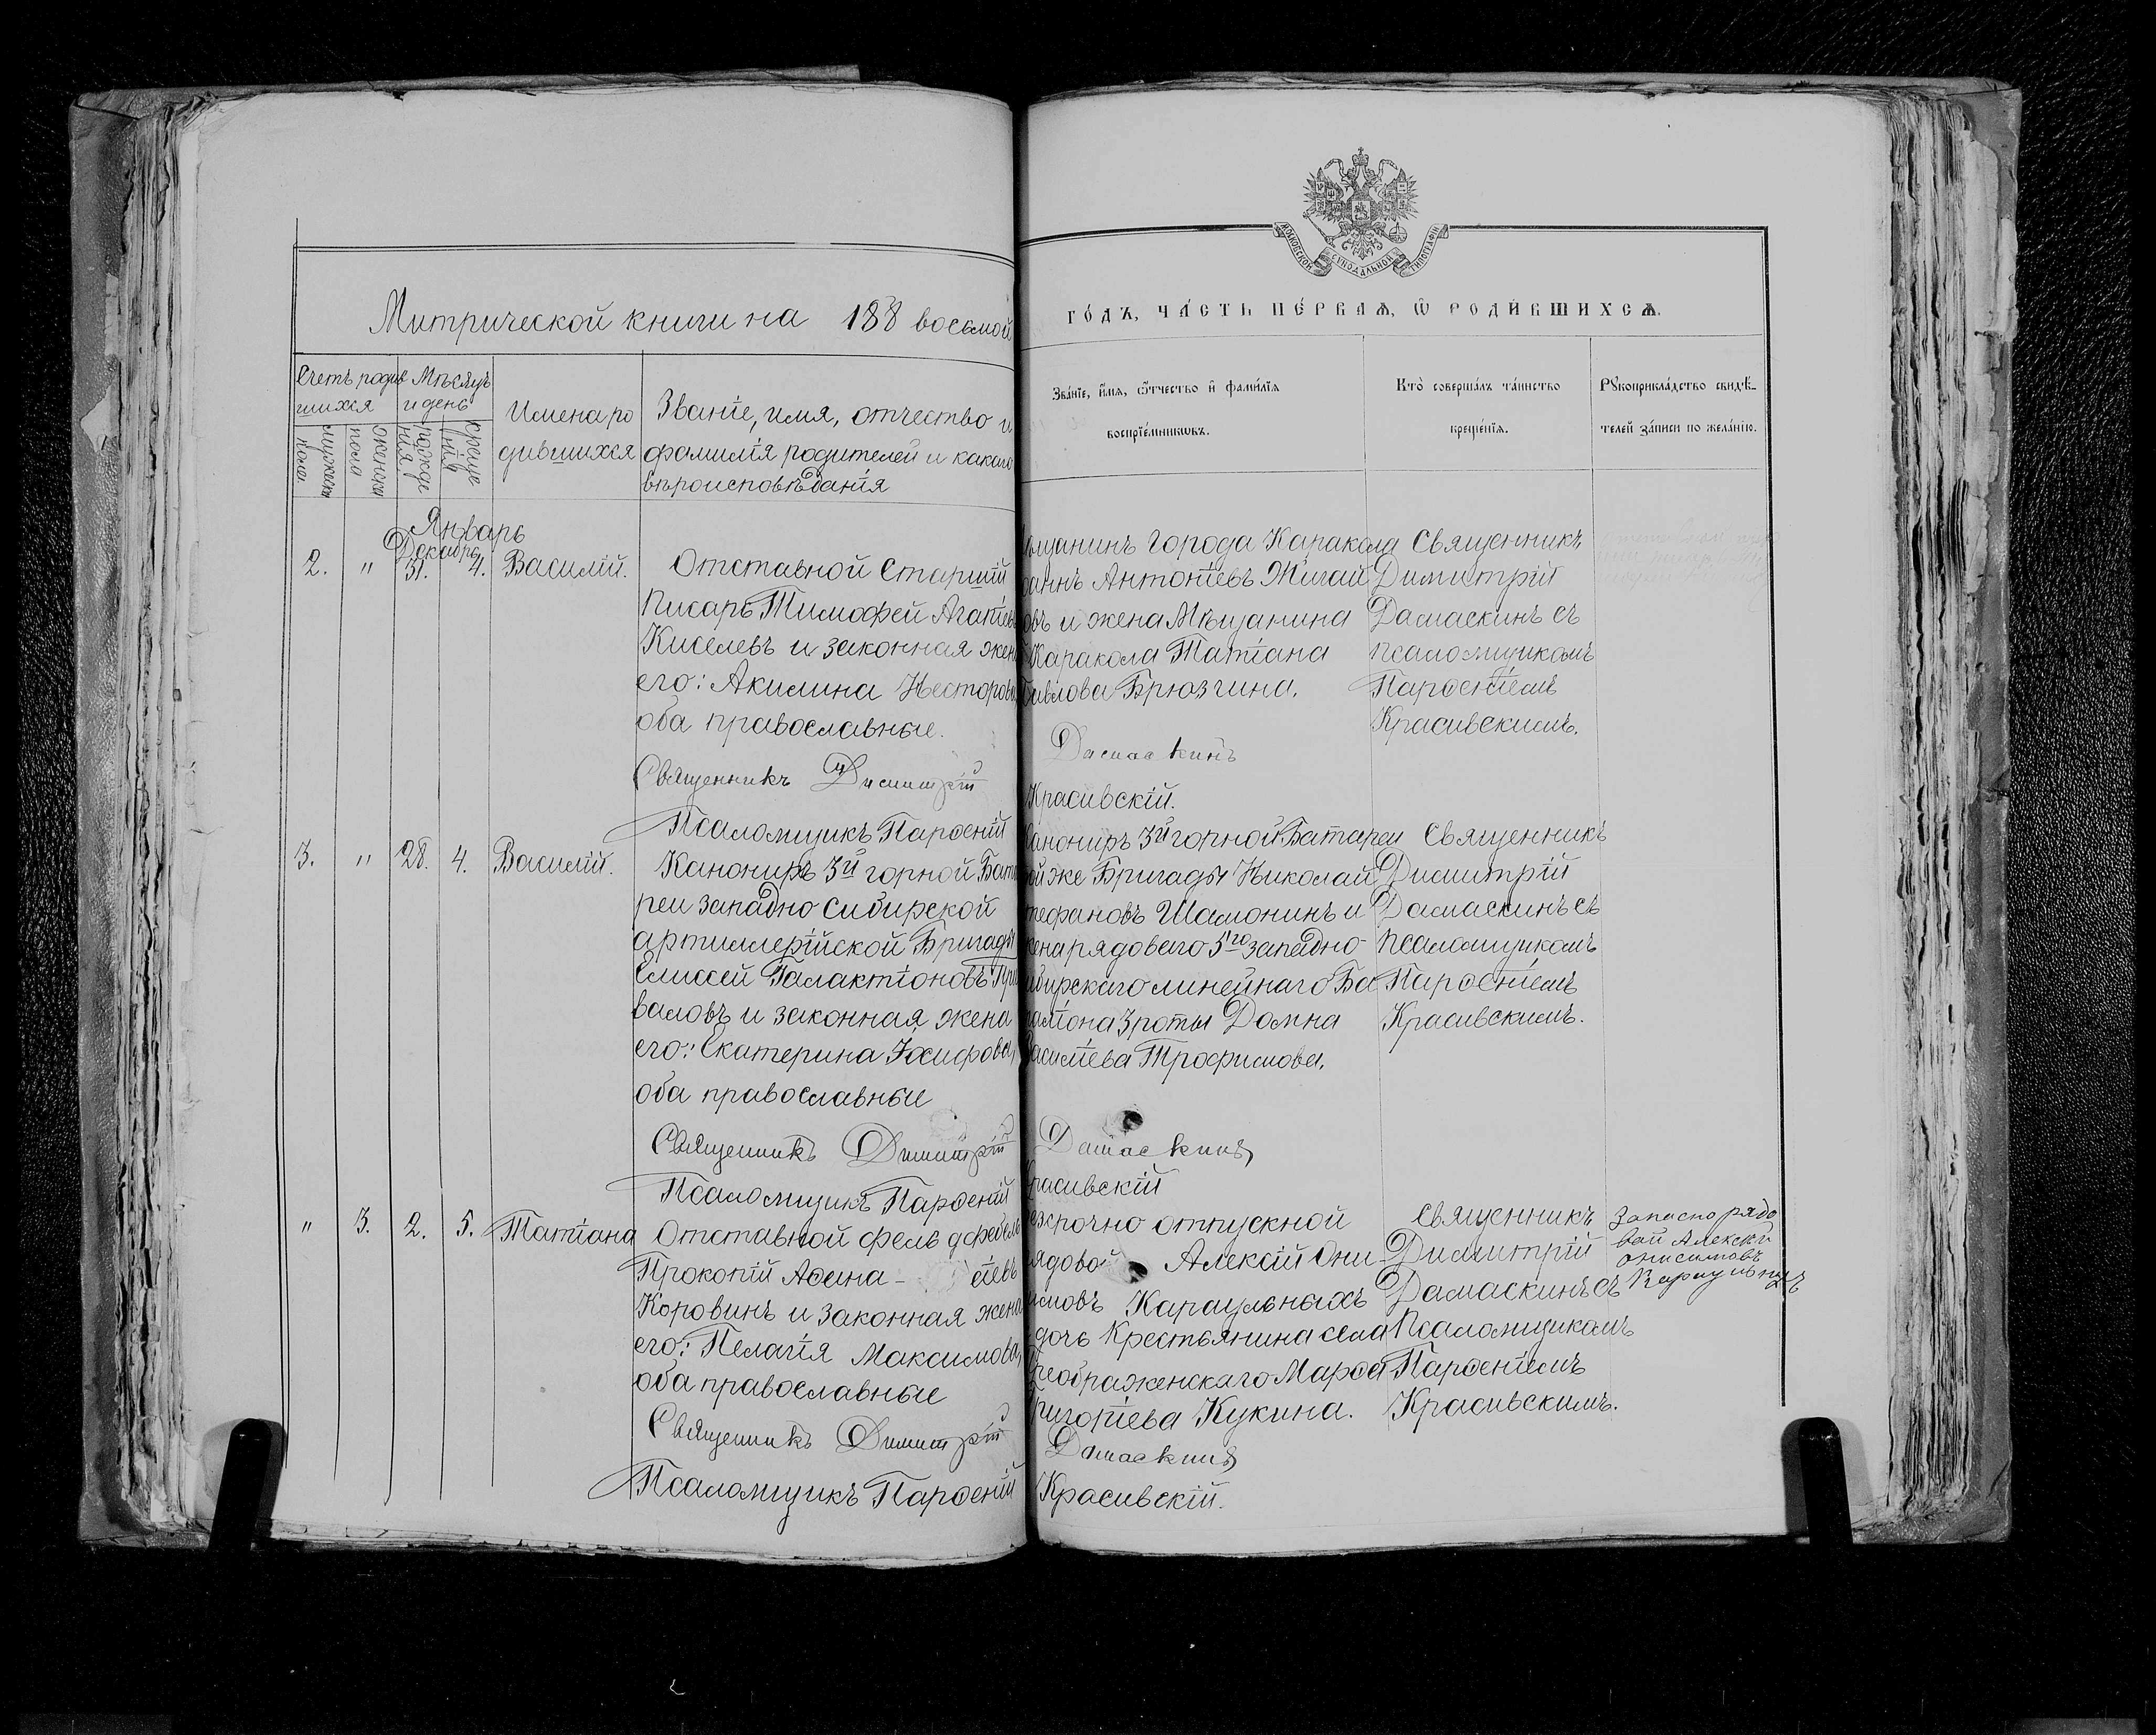 МОСКОВСКОЙ СѴНОДАЛЬНОЙ ТИПОГРАФІИ
Митрической книги на 188 восьмой
го́дъ, ча́сть пе́рвая, ѡ роди́вшихся.
Счетъ родив
шихся
Мѣсяцъ
и день
мужеска
пола
женска
пола
рожде
нія
креще
нія
Имена ро
дившихся
Званіе, имя, отчество и
фамилія родителей и какаго
вѣроисповѣданія
Зва́ніе, и́мя, ѻ́тчество и҆ фамі́лїа
воспрїе́мникѡвъ.
Кто̀ соверша́лъ та́инство
креще́нїѧ.
Рꙋкоприкла́дство свидѣ́-
телей за́писи по жела́нїю.
Январь
Декабрь
2. " 31. 4. Василій.
Отставной Старшій
Писарь Тимофей Агапіевъ
Киселевъ и законная жена
его: Акилина Несторова
оба православные.
Священникъ Димитрій
Псаломщикъ Парѳеній
щанинъ города Каракола
Антоніевъ Жигай
овъ и жена Мѣщанина
Каракола Татіана
Павлова Брюзгина.
Дамаскинъ
Красивскій.
Священникъ
Димитрій
Дамаскинъ съ
псаломщикомъ
Парѳеніемъ
Красивскимъ.
3. " 28. 4. Василій.
Канониръ 3й горной Бата
реи западно Сибирской
артиллерійской Бригады
Елиссей Галактіоновъ
валовъ и законная жена
его: Екатерина Іосифова,
оба православные
Священникъ Димитрій
Псаломщикъ Парѳеній
канониръ 3й горной Батареи
той же Бригады Николай
тефановъ Шамонинъ и
жена рядоваго 5го западно
ибирскаго линейнаго Ба
таліона 3 роты Домна
Васильева Трофимова.
Дамаскинъ
Красивскій
Священникъ
Димитрій
Дамаскинъ съ
псаломщикомъ
Парѳеніемъ
Красивскимъ.
" 3. 2. 5. Татіана
Отставной фельдфебель
Прокопій Аѳана- сіевъ
Коровинъ и законная жена
его: Пелагія Максимова,
оба православные
Священникъ Димитрій
Псаломщикъ Парѳеній
езсрочно отпускной
рядовой Алексій Они
симовъ Караульныхъ
дочь Крестьянина села
Преображенскаго Марѳа
Григоріева Кукина.
Дамаскинъ
Красивскій.
Священникъ
Димитрій
Дамаскинъ съ
Псаломщикомъ
Парѳеніемъ
Красивскимъ.
Запасно рядо
вой Алексей
онисимовъ
Караульныхъ